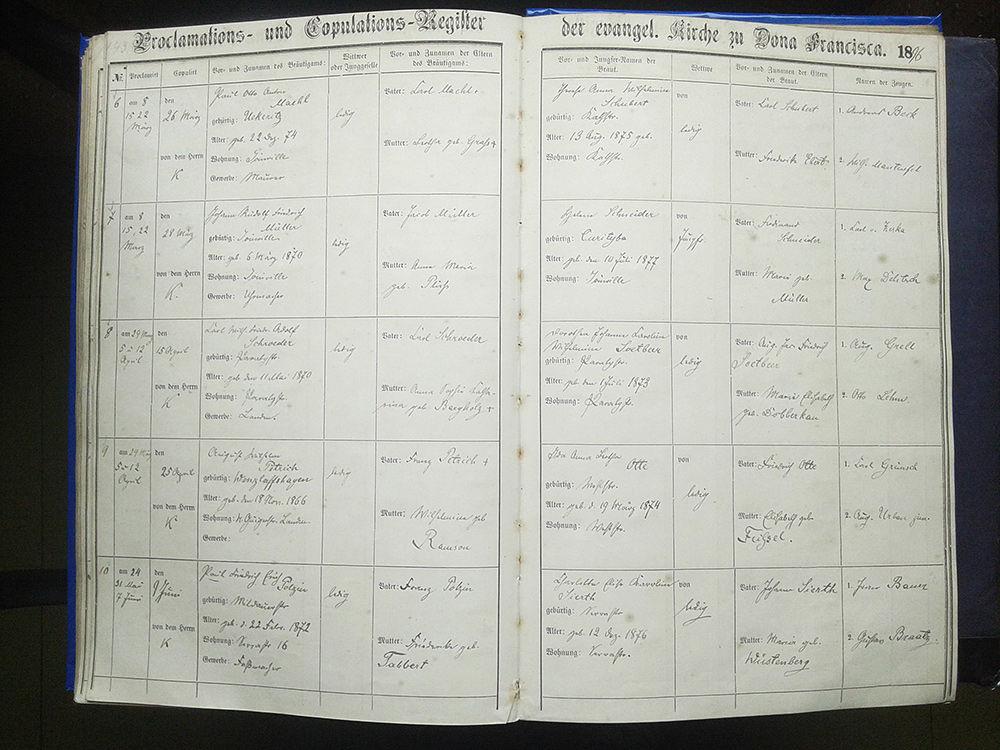 Proclamations- und Copulations-Register
der evangel. Kirche zu Dona Francisca. 1896
№ Proclamirt Copulirt Vor- und Zunamen des Bräutigams: Wittwer oder Junggeselle Vor- und Zunamen der Eltern des Bräutigams:
Vor- und Jungfer-Namen der Braut. Wittwe Vor- und Zunamen der Eltern der Braut. Namen der Zeugen.
6 am 8 den Paul Otto Vater: Carl
15 22 26 März
März gebürtig: Ueckeritz ledig
Alter: geb. 22 Dez. 74 Mutter: geb.
von dem Herrn Wohnung: Joinville
K Gewerbe: Maurer
Anna Wilhelmine von Vater: Carl Schubert 1. Andreas Beck
Schubert
gebürtig: ledig
Alter: 13 Aug. 1875 geb. Mutter: Friederike 2. Wilh. Manteufel
Wohnung:
7 am 8 den Johann Rudolf Friedrich Vater: Jacob Müller
15, 22 28 März Müller
März gebürtig: Joinville ledig
Alter: geb. 6 März 1870 Mutter: Anna Maria
von dem Herrn Wohnung: Joinville geb.
K. Gewerbe: Uhrmacher
Helene Schneider von Vater: Ferdinand 1. Carl v.
gebürtig: Curityba Jungfr. Schneider
Alter: geb. den 14 Juli 1877 Mutter: Maria geb. 2. Max Delitsch
Wohnung: Joinville Müller
8 am 29 März den Carl Wilh. Friedr. Adolf Vater: Carl Schroeder
5 u 12 15 April Schroeder
April gebürtig: Paratystr. ledig
Alter: geb den 11 Mai 1870 Mutter: Anna Sophie Catha-
von dem Herrn Wohnung: Paratystr. rina geb. Bargholz +
K Gewerbe: Landm.
Dorothea Johanna Caroline von Vater: Aug. Friedrich 1. Aug. Grell
Wilhelmine Soetbeer Soetbeer
gebürtig: Paratystr. ledig
Alter: geb den 1 Juli 1873 Mutter: Maria Elisabeth 2. Otto Lehm
Wohnung: Paratystr. geb. Dobberkau
9 am 29 März den August Vater: Franz Petrich +
5 u 12 25 April Petrich
April gebürtig: Wenzlaffshagen ledig
Alter: geb. den 18 Nov. 1866
von dem Herrn Wohnung: Landm. Mutter: Wilhelmine geb
K Gewerbe: Ramson
Ida Anna Otte von Vater: Friedrich Otte 1. Carl Grünsch
gebürtig: ledig
Alter: geb. d. 19 März 1874 Mutter: Elisabeth geb. 2. Aug. Urban jun.
Wohnung:
10 am 24 den Paul Friedrich Erich Vater: Franz Polzin
31 Mai 9 Juni Polzin
7 Juni gebürtig: ledig
Alter: geb. d. 22 Febr. 1872
von dem Herrn Wohnung: Serrastr 16 Mutter: Friederike geb.
K Gewerbe: Faßmacher Tabbert
Charlotte Elise Karoline von Vater: Johann Sierth 1. Bauer
Sierth
gebürtig: Serrastr. ledig
Alter: geb. 12 Dez. 1876 Mutter: Maria geb. 2. Gustav Braatz
Wohnung: Serrastr. Wüstenberg